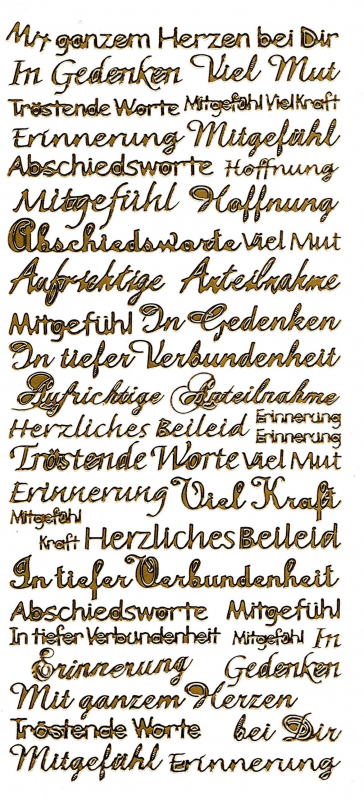 Mit ganzem Herzen bei Dir
In Gedenken Viel Mut
Tröstende Worte Mitgefühl Viel Kraft
Erinnerung Mitgefühl
Abschiedsworte Hoffnung
Mitgefühl Hoffnung
Abschiedsworte Viel Mut
Aufrichtige Anteilnahme
Mitgefühl In Gedenken
In tiefer Verbundenheit
Aufrichtige Anteilnahme
Herzliches Beileid Erinnerung
Erinnerung
Tröstende Worte Viel Mut
Erinnerung Viel Kraft
Mitgefühl
Kraft Herzliches Beileid
In tiefer Verbundenheit
Abschiedsworte Mitgefühl
In tiefer Verbundenheit Mitgefühl In
Erinnerung Gedenken
Mit ganzem Herzen
Tröstende Worte bei Dir
Mitgefühl Erinnerung